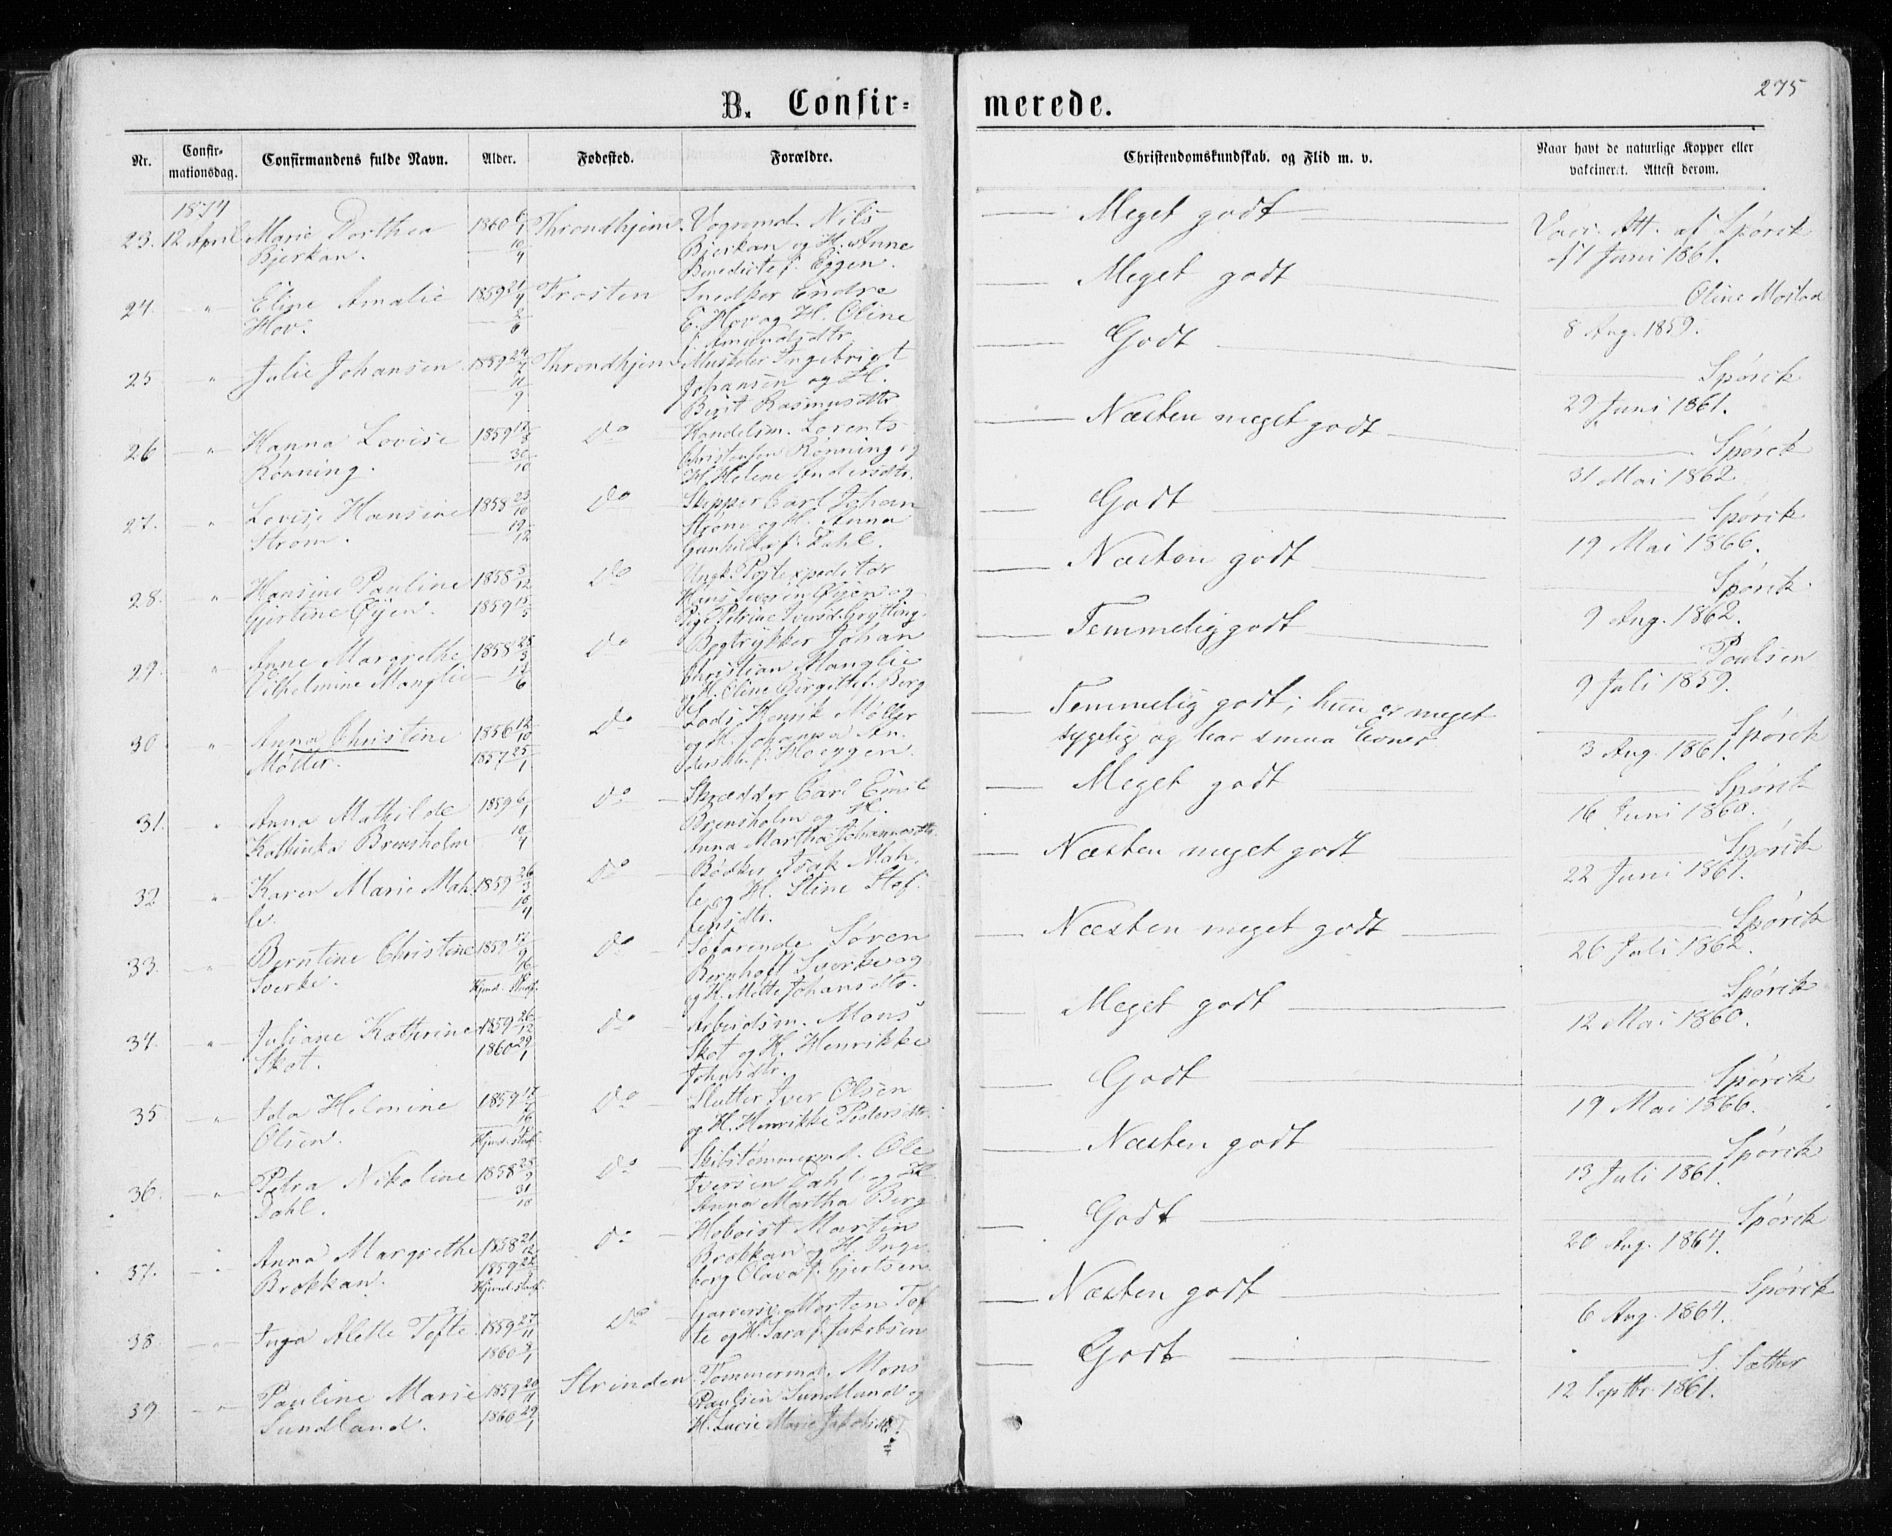 275
B. Confir-
merede.
Nr.
Confir-
mationsdag.
Confirmandens fulde Navn.
Alder.
Fødested.
Forældre.
Christendomskundskab. og Flid m. v.
Naar havt de naturlige Kopper eller
vakcineret. Attest derom.
1874
23. 12 April Marie Dorthea 1860 6/1 Throndhjem. Vognmd. Nils
Bjerkan. 10/4 Bjerkan og H. Anne
Benedicte f. Eggen.
Meget godt
Vacc. Att. af Spørck
Juni 1861.
24. " Eline Amalie 1859 Frosten Snedker Endre
Hov. E. Hov og H. Oline
Amundsdtr
Meget godt
Oline Mostad
8 Aug. 1859.
25 " Julie Johansen 1859 Throndhjem Ingebrigt
Johansen og H.
Berit Rasmusdtr
Godt
Spørck
29 Juni 1861.
26 " Hanna Lovise 1859 Do Handelsm. Lorents
Rønning. 30/10 Christensen Rønning og
H. Helene Andersdtr.
Næsten meget godt
Spørck
31 Mai 1862
27. " Lovise Hansine 1858 23/10 Do Skipper Carl Johan
Strøm. 19/12 Strøm og H. Anna
Gunhilda f. Dahl.
Godt
Spørck
19 Mai 1866.
28. " Hansine Pauline 1858 Do Ungk. Postexpeditør
Gjertine Øyen. 1859 Hans Iversen Øyen og
Pige Petrine
Næsten godt
Spørck
9 Aug. 1862.
29. " Anne Margrethe 1858 25/3 Do Bogtrykker Johan
Vilhelmine Manglie Christian Manglie
og H. Eline Birgitte f. Berg
Temmelig godt
Poulsen
9 Juli 1859.
30. " Anna Christine 1856 12/10 Do Lods Henrik Møller
Møller. 1857 25/1 og H. Johanna An-
dersdtr f. Hoeggen.
Temmelig godt; hun er meget
sygelig og har smaa Evner
Spørck
3 Aug. 1861.
31. " Anna Mathilde 1859 6/1 Do Skrædder Carl Emil
Kathinka Brensholm 10/4 Brensholm og H.
Anna Martha Johannesdtr.
Meget godt
Spørck
16 Juni 1860.
32 " Karen Marie Mah- 1859 26/3 Do Bødker Isak Mah-
le. 10/4 le og H. Stine Stef-
fensdtr.
Næsten meget godt
Spørck
22 Juni 1861.
33. " Berntine Christine 1859 Do Søfarende Søren
Sverke. Hjemd. Bernhoft Sverke og
og H. Mette Johansdtr.
Næsten meget godt
Spørck
26 Juli 1862.
34. " Juliane Kathrine 1859 26/12 Do Arbeidsm. Mons
Skot. 1860 29/1 Skot og H. Henrikke
Johnsdtr.
Meget godt
Spørck
12 Mai 1860.
35 " Ida Helmine 1859 Do Slutter Iver Olsen
Olsen. Hjemd. og H. Henrikke Pedersdtr.
Godt
Spørck
19 Mai 1866.
36. " Petra Nikoline 1858 Do Skibstømmermd. Ole
Dahl. 31/10 Iversen Dahl og H.
Anna Martha Berg
Næsten godt
Spørck
13 Juli 1861.
37. " Anna Margrethe 1858 21/12 Do Hoboist Martin
Brækkan. 1859 Brækkan og H. Inge-
Hjemd. borg Olava f. Gjertsen.
Godt
Spørck
20 Aug. 1864.
38. " Inga Alette Tofte 1859 27/11 Do Garversv. Morten Tof-
1860 8/1 te og H. Sara f. Jakobsen
Næsten godt
Spørck
6 Aug. 1864.
39 " Pauline Marie 1859 20/11 Strinden Tømmermd. Mons
Sundland. 1860 29/1 Paulsen Sundland og
H. Lucie Marie Jakobsdtr.
Godt
S. Sæther
12 Septbr. 1861.